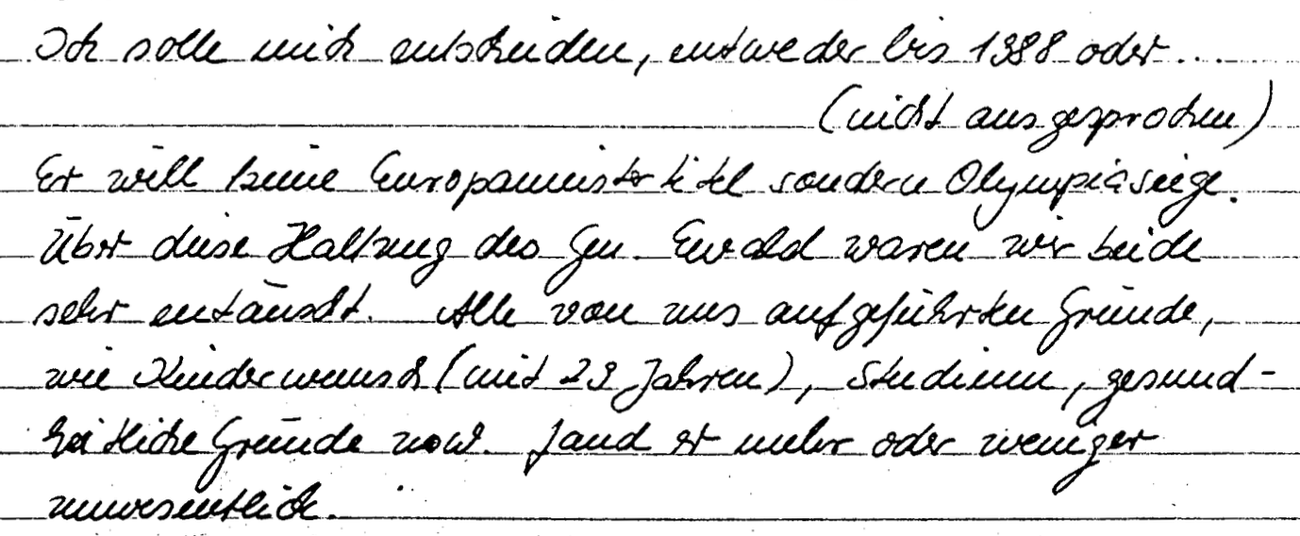 Ich solle mich entscheiden, entweder bis 1988 oder...
(nicht ausgesprochen)
Er will keine Europameistertitel sondern Olympiasiege.
Über diese Haltung des Gen. Ewald waren wir beide
sehr entäuscht. Alle von uns aufgeführten Gründe,
wie Kinderwunsch (mit 29 Jahren), Studium, gesund-
heitliche Gründe usw. fand er mehr oder weniger
unwesentlich.